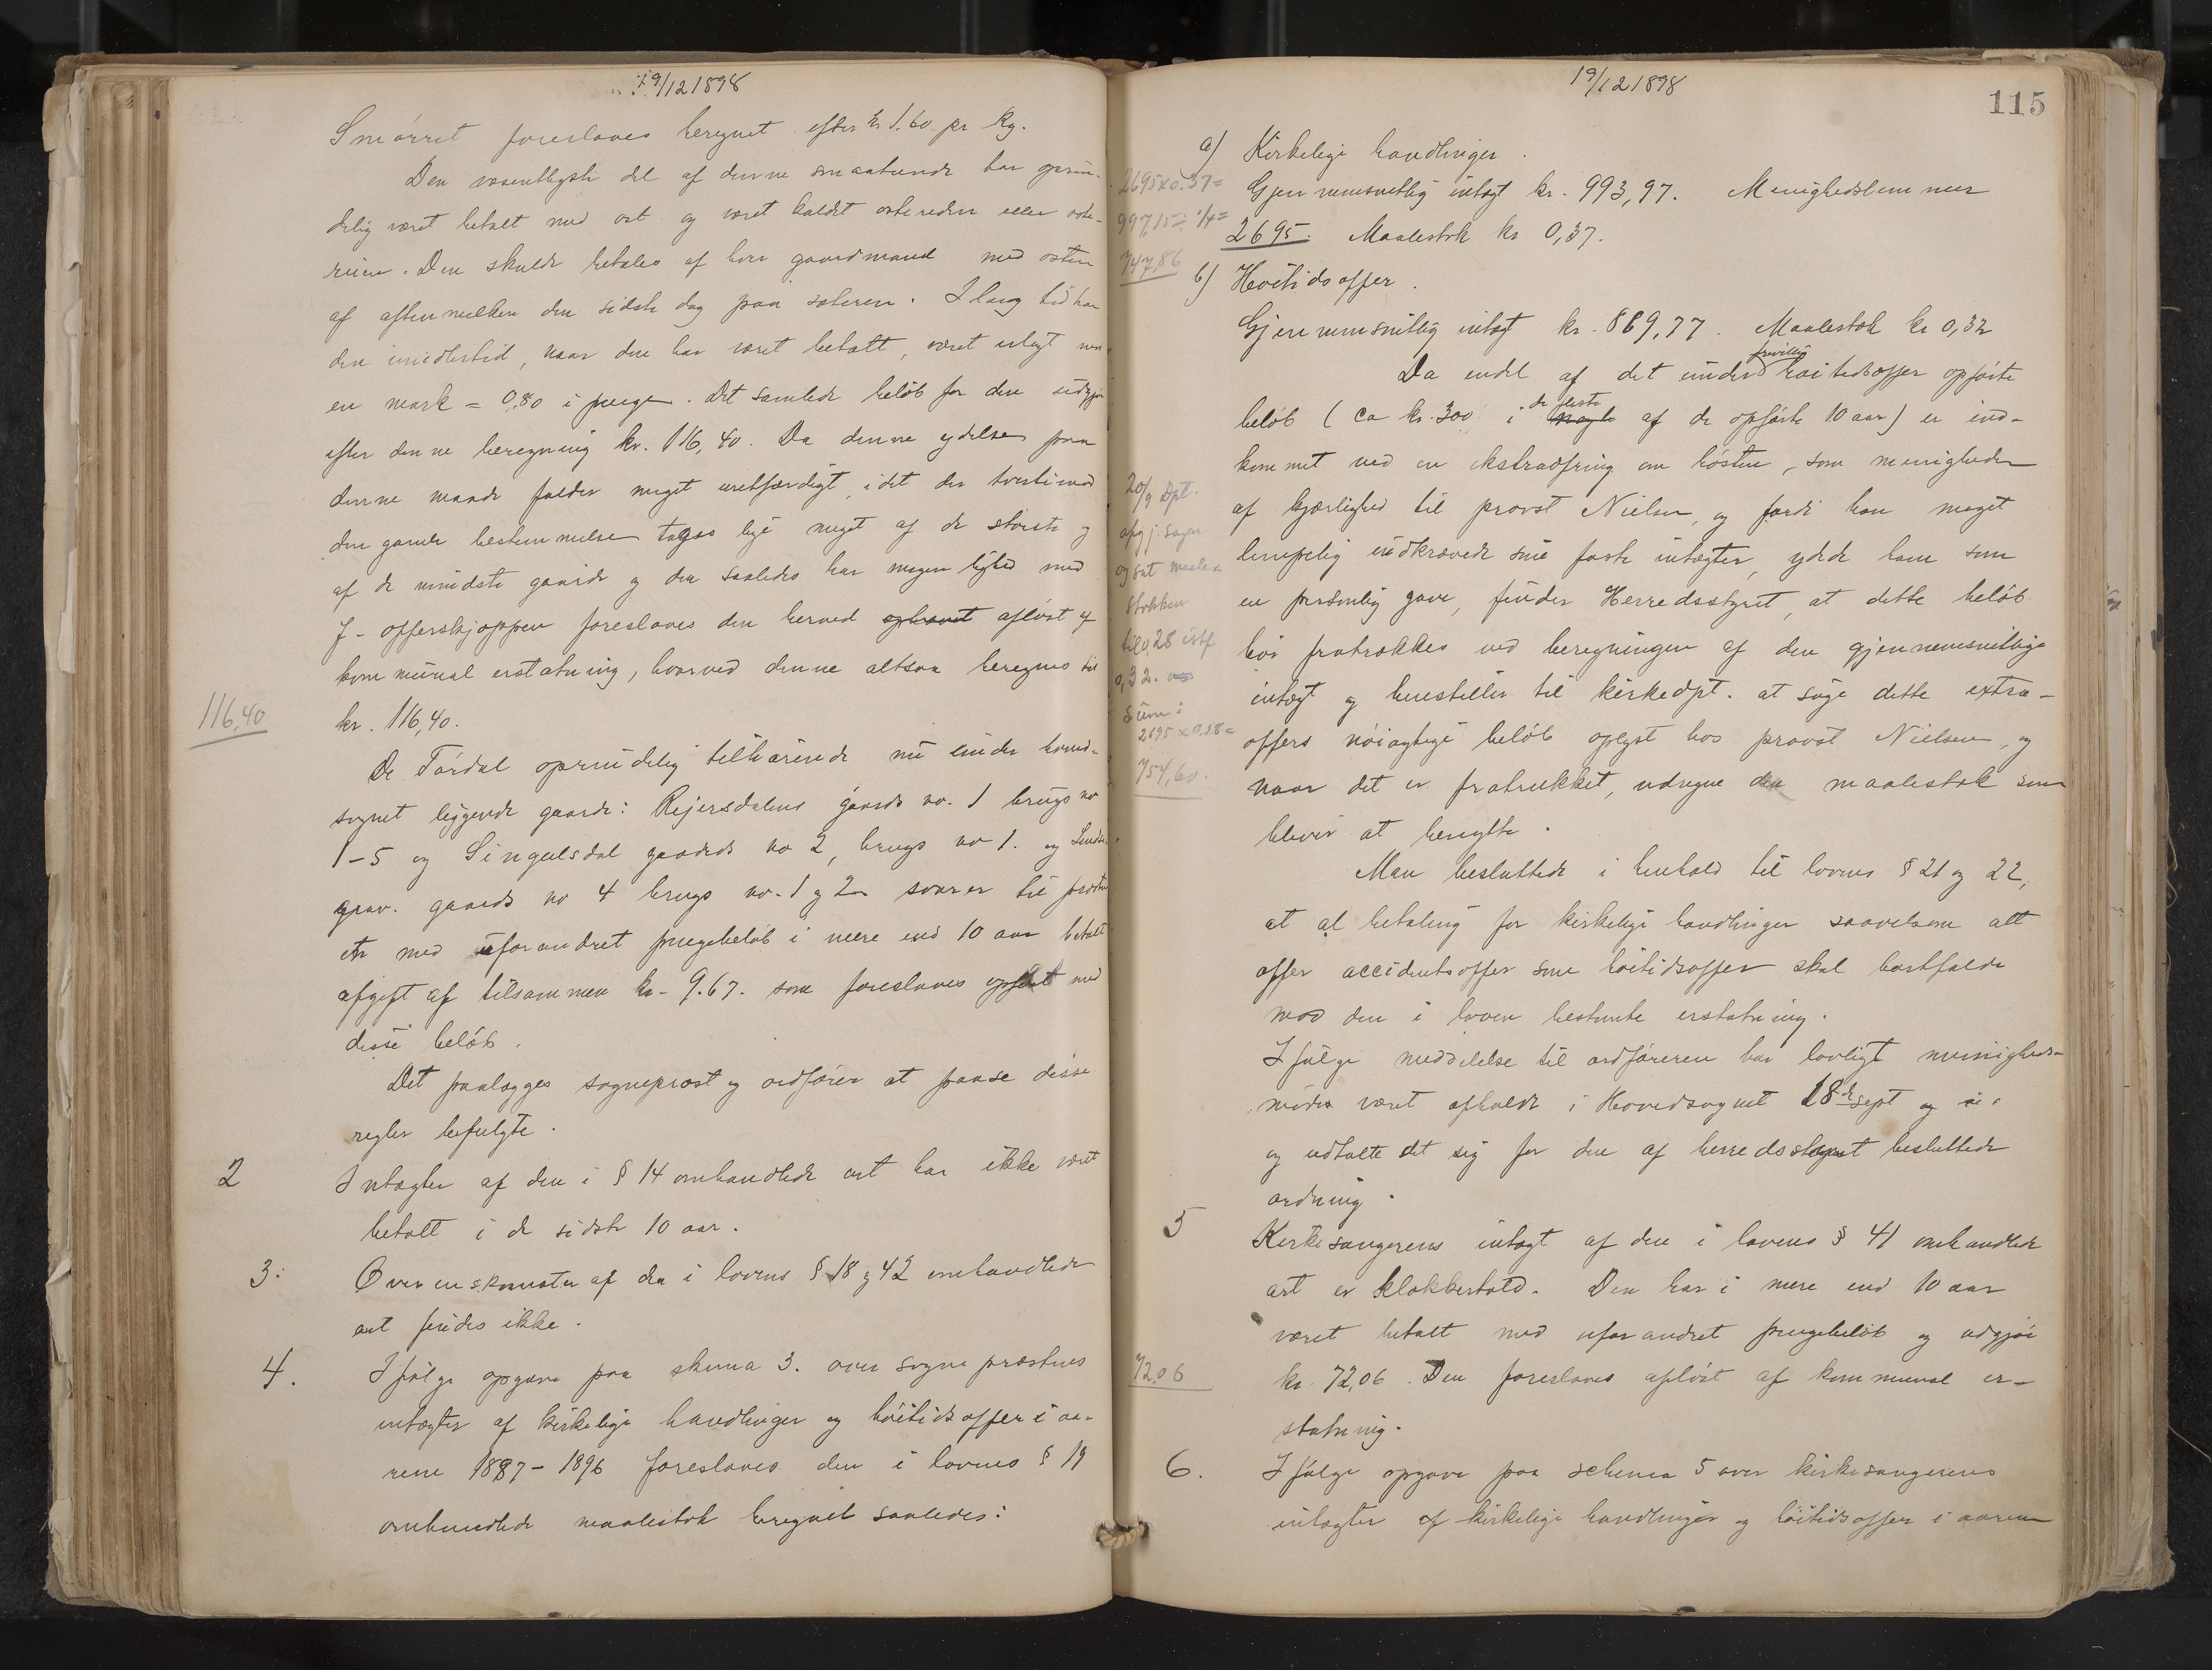 19/12 1898
Smørret foreslaaes beregnet efter kr 1,60 pr kg.
Den væsentligste del af denne smaatiende har oprin-
delig været betalt med ost og været kaldt osterеden eller oste-
Den skulde betales af hver gaardmand med osten
af aftenmelken den sidste dag paa sæteren. I lang tid har
den imidlertid, naar den har været betalt, været erlagt med
en mark = 0,80 i penge. Det samlede beløb for den udgjør
efter denne beregning kr. 116,40. Da denne ydelse paa
denne maade falder meget uretfærdigt, idet der tvertimod
den gamle bestemmelse tages lige meget af de største og
af de mindste gaarde og den saaledes har megen lighed med
f-offerskjæppen foreslaaes den herved ophævet afløst af
kommunal erstatning, hvorved denne altsaa beregnes til
116,40
kr. 116,40.
De Tørdal oprindelig tilhørende nu under hoved-
sognet liggende gaarde: Rejersdalens gaards no. 1 brugs no
1-5 og Singulsdal gaards no 2, brugs no 1. og
grav. gaards no 4 brugs no. 1 og 2 svarer til præsten
en med uforandret pengebeløb i mere end 10 aar betalt
afgift af tilsammen kr. 9.67. som foreslaaes opført med
disse beløb.
Det paalægges sogneprest og ordfører at paase disse
regler befulgte.
2
Indtægter af den i § 14 omhandlede art har ikke været
betalt i de sidste 10 aar.
3.
Overenskomster af den i lovens § 18 og 42 omhandlede
art findes ikke.
4.
Ifølge opgave paa skema 3. over sognepræstens
intægter af kirkelige handlinger og høitidsoffer i aa-
rene 1887-1896 foreslaaes den i lovens § 19
omhandlede maalestok beregnet saaledes:
19/12 1898
115
a) Kirkelige handlinger.
2695x0.37=
997,15 ÷ 1/4=
747,86
Gjennemsnitlig intægt kr. 993,97. Menighedslemmer
2695. Maalestok kr 0,37.
b) Høitidsoffer.
Gjennemsnitlig intægt kr. 869,77. Maalestok kr 0,32
frivillig
Da endel af det under høitidsoffer opførte
de fleste
beløb (ca kr. 300 i nogle af de opførte 10 aar) er ind-
kommet ved en ekstraofring om høsten, som menigheden
af kjærlighed til provst Nielsen, og fordi han meget
lempelig indkrævede sine faste intægter, ydede ham som
en personlig gave, finder Herredsstyret, at dette beløb
bør fratrækkes ved beregningen af den gjennemsnitlige
intægt og henstiller til kirkedpt. at søge dette extra-
offers nøiagtige beløb oplyst hos provst Nielsen, og
naar det er fratrukket, udregne den maalestok som
bliver at benytte.
20/9 Dpt.
afgj. sagen
og sat maale-
stokken
til 0,28 istf
0,32.
Sum:
2695 x 0,28=
754,60.
Man besluttede i henhold til lovens § 21 og 22,
at al betaling for kirkelige handlinger saavelsom alt
offer accidentsoffer som høitidsoffer skal bortfalde
mod den i loven bestemte erstatning.
Ifølge meddelelse til ordføreren har lovligt menigheds-
møder været afholdt i Hovedsognet 18de sept og i
og udtalte det sig for den af herredsstyret besluttede
ordning.
5
Kirkesangerens intægt af den i lovens § 41 omhandlede
art er klokkertold. Den har i mere end 10 aar
været betalt med uforandret pengebeløb og udgjør
72.06
kr. 72,06. Den foreslaaes afløst af kommunal er-
statning.
6.
Ifølge opgave paa schema 5 over kirkesangerens
intægter af kirkelige handlinger og høitidsoffer i aarene